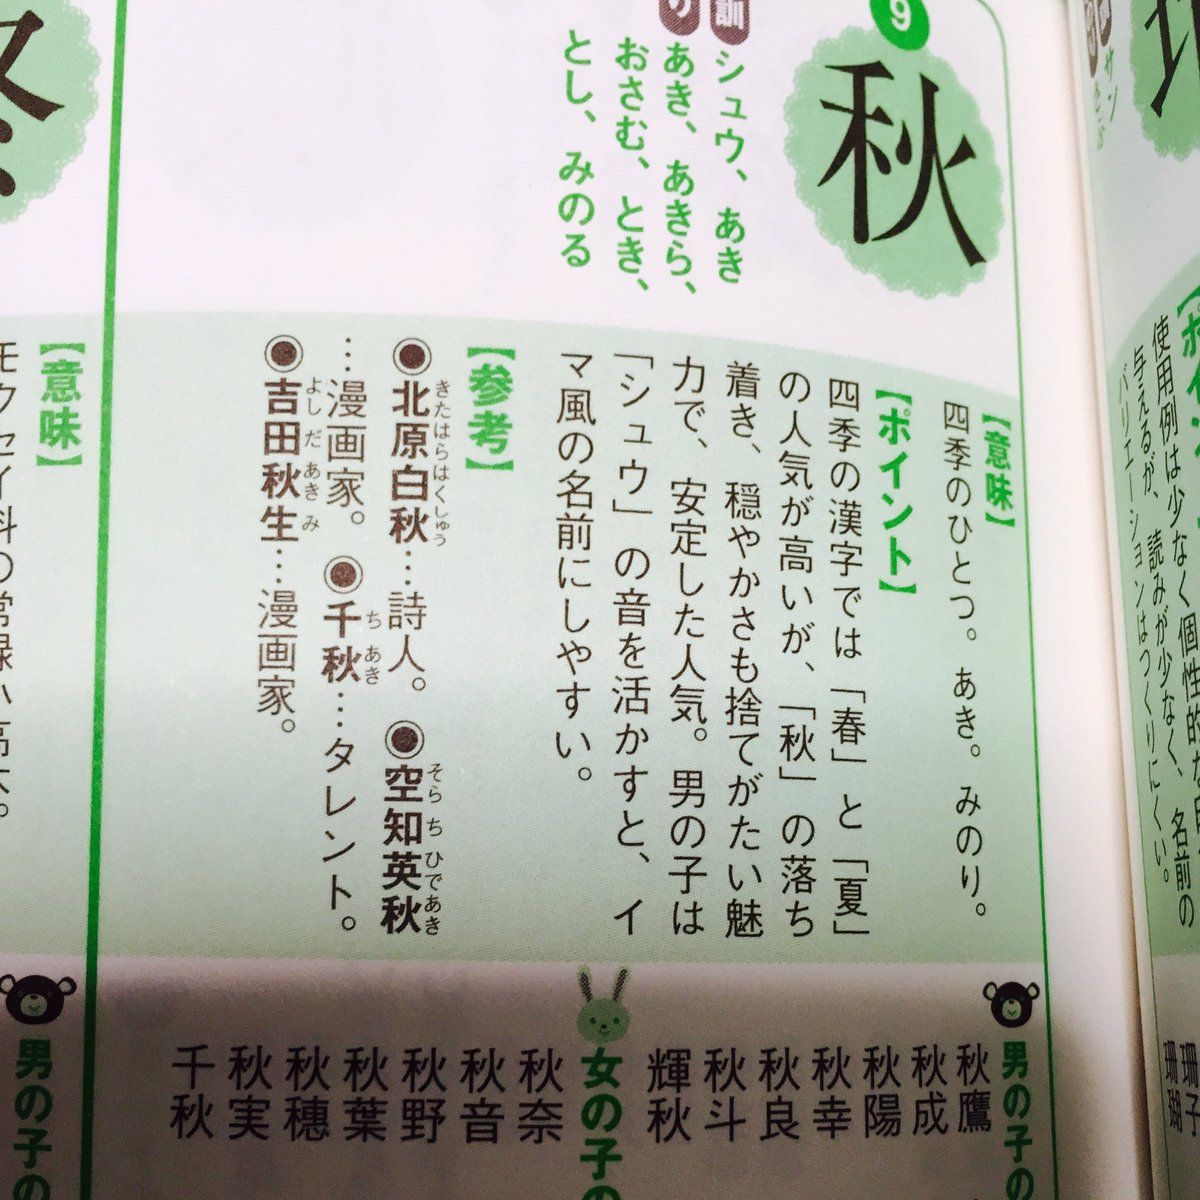 9
秋
訓
シュウ、あき
あき、あきら、
おさむ、とき、
とし、みのる
【意味】
四季のひとつ。あき。みのり。
【ポイント】
四季の漢字では「春」と「夏」
の人気が高いが、「秋」の落ち
着き、穏やかさも捨てがたい魅
力で、安定した人気。男の子は
「シュウ」の音を活かすと、イ
マ風の名前にしやすい。
【参考】
◉北原白秋…詩人。◉空知英秋
きたはらはくしゅう
そらちひであき
…漫画家。◉千秋…タレント。
ちあき
◉吉田秋生…漫画家。
よしだあきみ
男の子の
秋鷹
秋成
秋陽
秋幸
秋良
秋斗
輝秋
女の子の
秋奈
秋音
秋野
秋葉
秋穂
秋実
千秋
【意味】
モクセイ科の常緑小高木。
男の子の
使用例は少なく個性的な
与えるが、読みが少なく、名前の
バリエーションはつくりにくい。
珊子
珊瑚